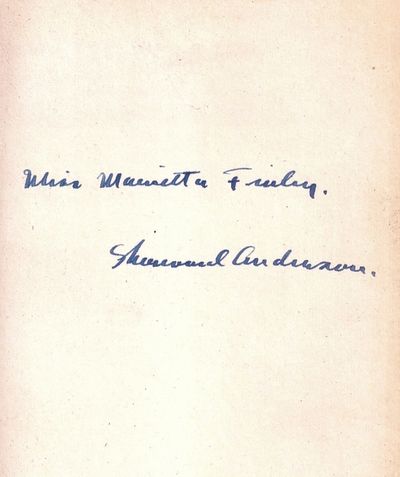 Miss Marietta Finley.
Sherwood Anderson.